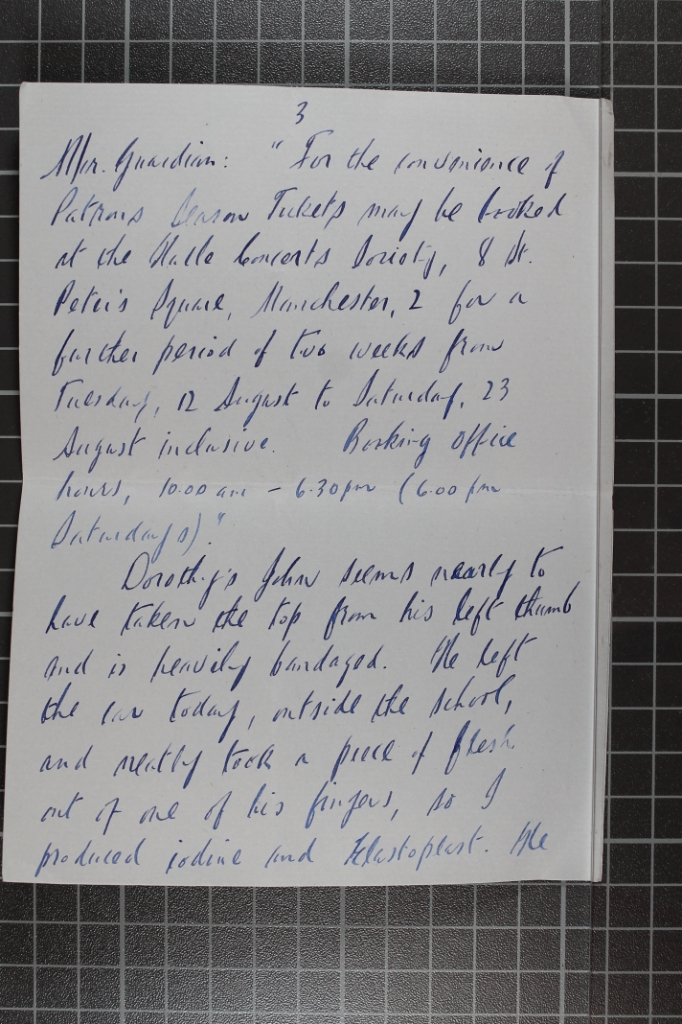 3
M/cr. Guardian: "For the convenience of
Patrons Season Tickets may be booked
at the Halle Concerts Society, 8 St.
Peter's Square, Manchester, 2 for a
further period of two weeks from
Tuesday, 12 August to Saturday, 23
August inclusive. Booking office
hours, 10.00 am – 6.30pm (6.00 pm
Saturdays)."
Dorothy's John seems nearly to
have taken the top from his left thumb
and is heavily bandaged. He left
the car today, outside the school,
and neatly took a piece of flesh
out of one of his fingers, so I
produced iodine and Elastoplast. He